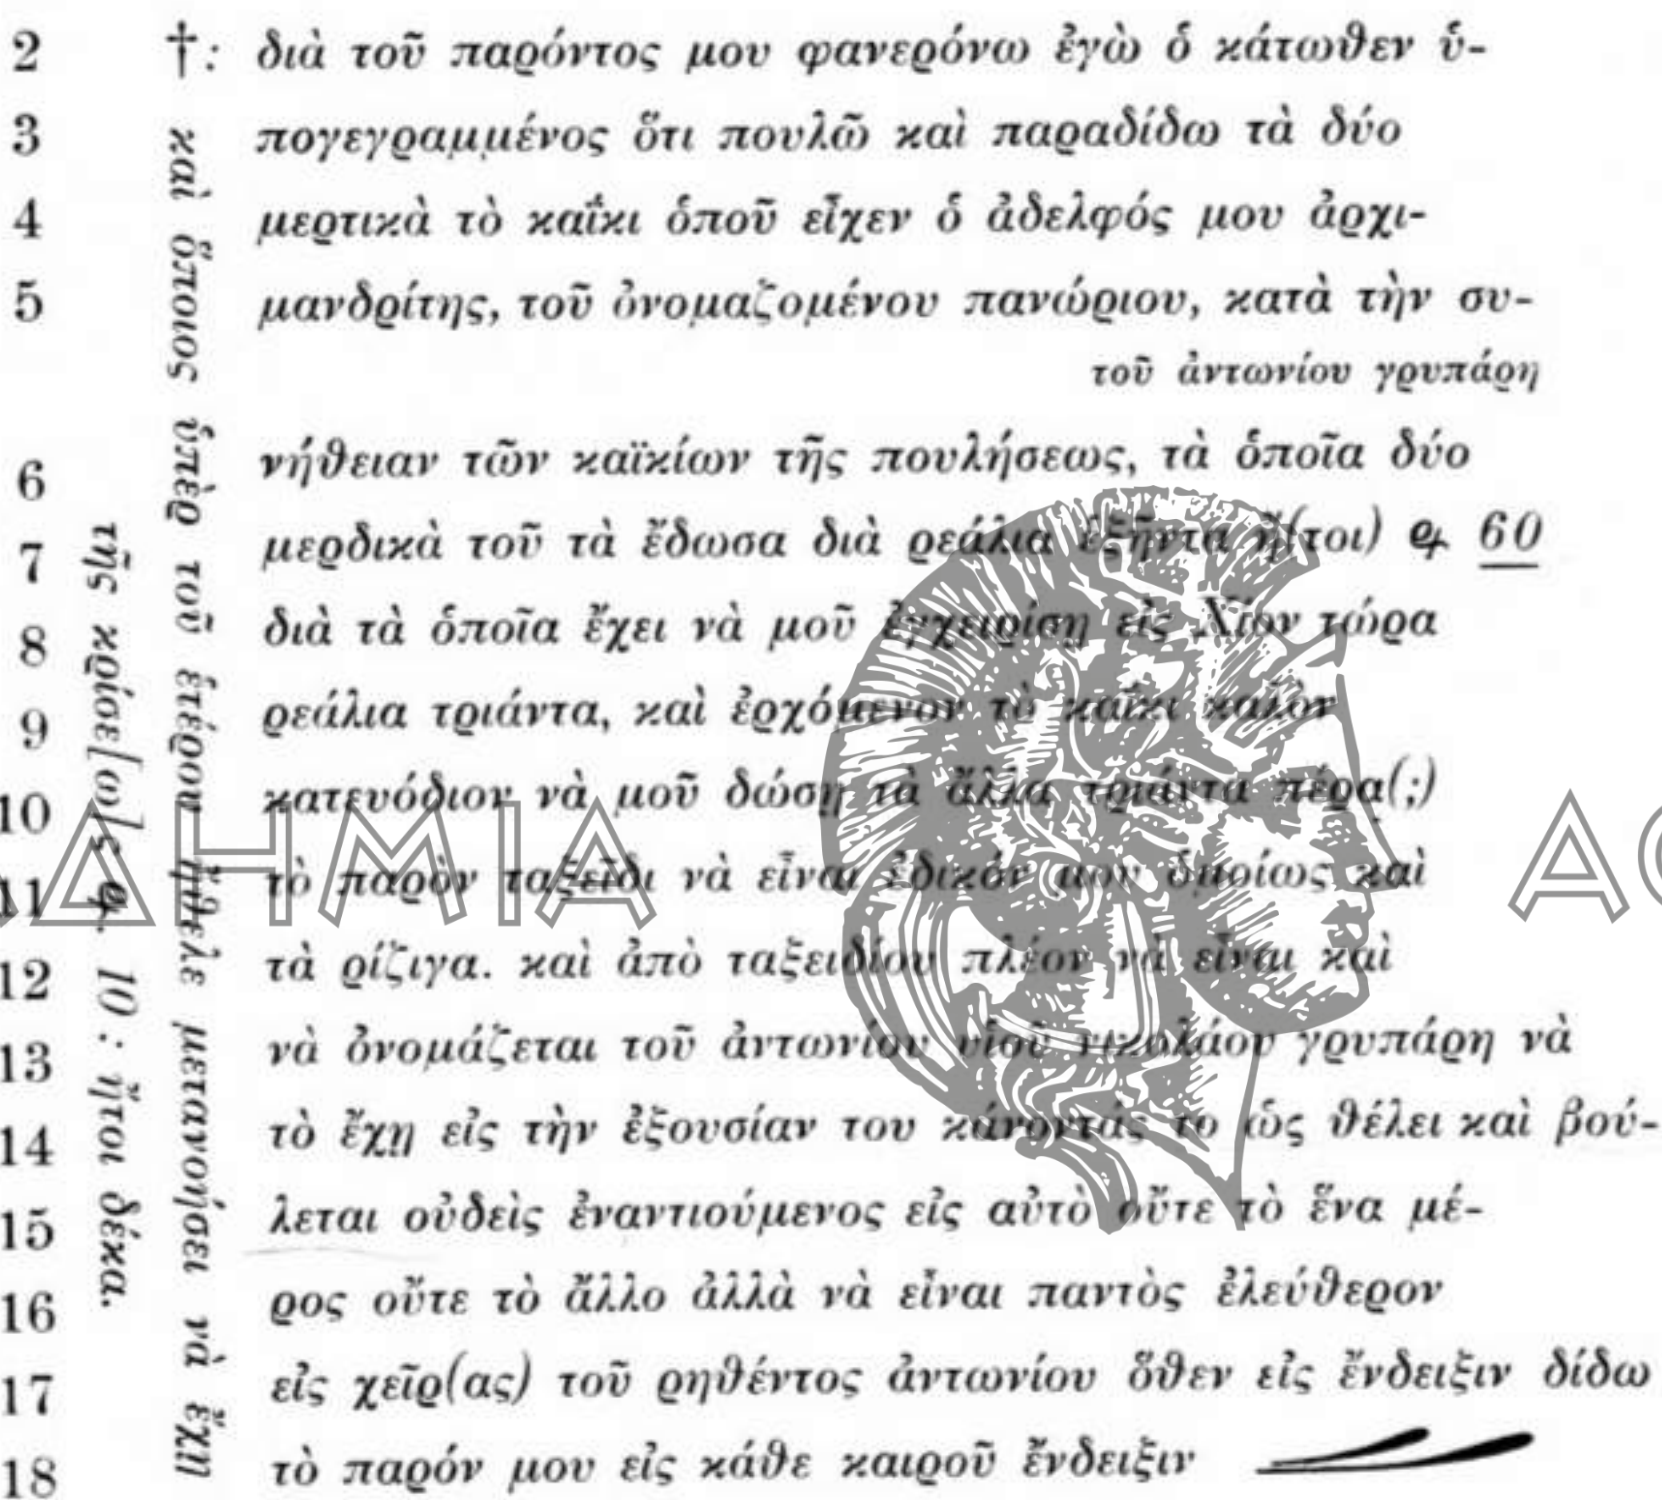 2 †: διὰ τοῦ παρόντος μου φανερόνω ἐγὼ ὁ κάτωθεν ὑ-
3 πογεγραμμένος ὅτι πουλῶ καὶ παραδίδω τὰ δύο
4 μερτικὰ τὸ καΐκι ὁποῦ εἶχεν ὁ ἀδελφός μου ἀρχι-
5 μανδρίτης, τοῦ ὀνομαζομένου πανώριου, κατὰ τὴν συ-
τοῦ ἀντωνίου γρυπάρη
6 νήθειαν τῶν καϊκίων τῆς πουλήσεως, τὰ ὁποῖα δύο
7 μερδικὰ τοῦ τὰ ἔδωσα διὰ ρεάλια ἑξῆντα ἤ(τοι) 60
8 διὰ τὰ ὁποῖα ἔχει νὰ μοῦ ἐγχειρίσῃ εἰς Χίον τώρα
9 ρεάλια τριάντα, καὶ ἐρχόμενον τὸ καΐκι καλὸν
10 κατευόδιον νὰ μοῦ δώσῃ τὰ ἄλλα τριάντα πέρα(;)
11 τὸ παρὸν ταξεῖδι νὰ εἶναι ἐδικόν μου ὁμοίως καὶ
12 τὰ ρίζιγα. καὶ ἀπὸ ταξειδίου πλέον νὰ εἶναι καὶ
13 νὰ ὀνομάζεται τοῦ ἀντωνίου υἱοῦ νικολάου γρυπάρη νὰ
14 τὸ ἔχῃ εἰς τὴν ἐξουσίαν του κάνοντάς το ὡς θέλει καὶ βού-
15 λεται οὐδεὶς ἐναντιούμενος εἰς αὐτὸ οὔτε τὸ ἕνα μέ-
16 ρος οὔτε τὸ ἄλλο ἀλλὰ νὰ εἶναι παντὸς ἐλεύθερον
17 εἰς χεῖρ(ας) τοῦ ρηθέντος ἀντωνίου ὅθεν εἰς ἔνδειξιν δίδω
18 τὸ παρόν μου εἰς κάθε καιροῦ ἔνδειξιν
καὶ ὅποιος ὑπὲρ τοῦ ἑτέρου ἤθελε μετανοήσει νὰ ἔχῃ
τῆς κρίσε[ω]ς 10 : ἤτοι δέκα.
ΔΗΜΙΑ